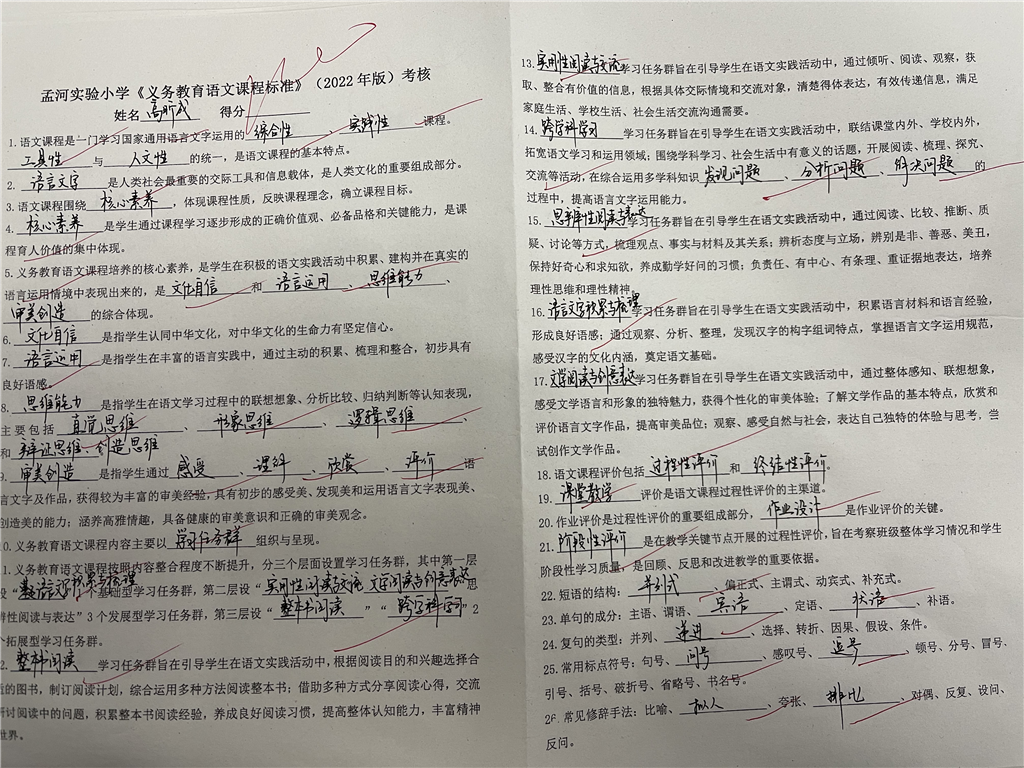 孟河实验小学《义务教育语文课程标准》（2022年版）考核
姓名 高昕成 得分
1.语文课程是一门学习国家通用语言文字运用的 综合性 、 实践性 课程。
工具性 与 人文性 的统一，是语文课程的基本特点。
2. 语言文字 是人类社会最重要的交际工具和信息载体，是人类文化的重要组成部分。
3.语文课程围绕 核心素养 ，体现课程性质，反映课程理念，确立课程目标。
4. 核心素养 是学生通过课程学习逐步形成的正确价值观、必备品格和关键能力，是课
程育人价值的集中体现。
5.义务教育语文课程培养的核心素养，是学生在积极的语文实践活动中积累、建构并在真实的
语言运用情境中表现出来的，是 文化自信 和 语言运用 、 思维能力 、
审美创造 的综合体现。
6. 文化自信 是指学生认同中华文化，对中华文化的生命力有坚定信心。
7. 语言运用 是指学生在丰富的语言实践中，通过主动的积累、梳理和整合，初步具有
良好语感。
8. 思维能力 是指学生在语文学习过程中的联想想象、分析比较、归纳判断等认知表现，
主要包括 直觉思维 、 形象思维 、 逻辑思维 、
和 辩证思维、创造思维
9. 审美创造 是指学生通过 感受 、 理解 、 欣赏 、 评价 语
言文字及作品，获得较为丰富的审美经验，具有初步的感受美、发现美和运用语言文字表现美、
创造美的能力；涵养高雅情趣，具备健康的审美意识和正确的审美观念。
10.义务教育语文课程内容主要以 学习任务群 组织与呈现。
1.义务教育语文课程按照内容整合程度不断提升，分三个层面设置学习任务群，其中第一层
设“ 语言文字积累与梳理 ”个基础型学习任务群，第二层设“ 实用性阅读与交流 文学阅读与创意表达 ”“思
辨性阅读与表达”3个发展型学习任务群，第三层设“ 整本书阅读 ”“ 跨学科学习 ”2
个拓展型学习任务群。
2. 整本书阅读 学习任务群旨在引导学生在语文实践活动中，根据阅读目的和兴趣选择合
适的图书，制订阅读计划，综合运用多种方法阅读整本书；借助多种方式分享阅读心得，交流
研讨阅读中的问题，积累整本书阅读经验，养成良好阅读习惯，提高整体认知能力，丰富精神
世界。
13. 实用性阅读与交流 学习任务群旨在引导学生在语文实践活动中，通过倾听、阅读、观察，获
取、整合有价值的信息，根据具体交际情境和交流对象，清楚得体表达，有效传递信息，满足
家庭生活、学校生活、社会生活交流沟通需要。
14. 跨学科学习 学习任务群旨在引导学生在语文实践活动中，联结课堂内外、学校内外，
拓宽语文学习和运用领域；围绕学科学习、社会生活中有意义的话题，开展阅读、梳理、探究、
交流等活动，在综合运用多学科知识 发现问题 、 分析问题 、 解决问题 的
过程中，提高语言文字运用能力。
15. 思辨性阅读与表达 学习任务群旨在引导学生在语文实践活动中，通过阅读、比较、推断、质
疑、讨论等方式，梳理观点、事实与材料及其关系；辨析态度与立场，辨别是非、善恶、美丑，
保持好奇心和求知欲，养成勤学好问的习惯；负责任、有中心、有条理、重证据地表达，培养
理性思维和理性精神。
16. 语言文字积累与梳理 学习任务群旨在引导学生在语文实践活动中，积累语言材料和语言经验，
形成良好语感；通过观察、分析、整理，发现汉字的构字组词特点，掌握语言文字运用规范，
感受汉字的文化内涵，奠定语文基础。
17. 文学阅读与创意表达 学习任务群旨在引导学生在语文实践活动中，通过整体感知、联想想象，
感受文学语言和形象的独特魅力，获得个性化的审美体验；了解文学作品的基本特点，欣赏和
评价语言文字作品，提高审美品位；观察、感受自然与社会，表达自己独特的体验与思考，尝
试创作文学作品。
18.语文课程评价包括 过程性评价 和 终结性评价 。
19. 课堂教学 评价是语文课程过程性评价的主渠道。
20.作业评价是过程性评价的重要组成部分， 作业设计 是作业评价的关键。
21. 阶段性评价 是在教学关键节点开展的过程性评价，旨在考察班级整体学习情况和学生
阶段性学习质量，是回顾、反思和改进教学的重要依据。
22.短语的结构： 并列式 、偏正式、主谓式、动宾式、补充式。
23.单句的成分：主语、谓语、 宾语 、定语、 状语 、补语。
24.复句的类型：并列、 递进 、选择、转折、因果、假设、条件。
25.常用标点符号：句号、 问号 、感叹号、 逗号 、顿号、分号、冒号、
引号、括号、破折号、省略号、书名号。
26.常见修辞手法：比喻、 拟人 、夸张、 排比 、对偶、反复、设问、
反问。